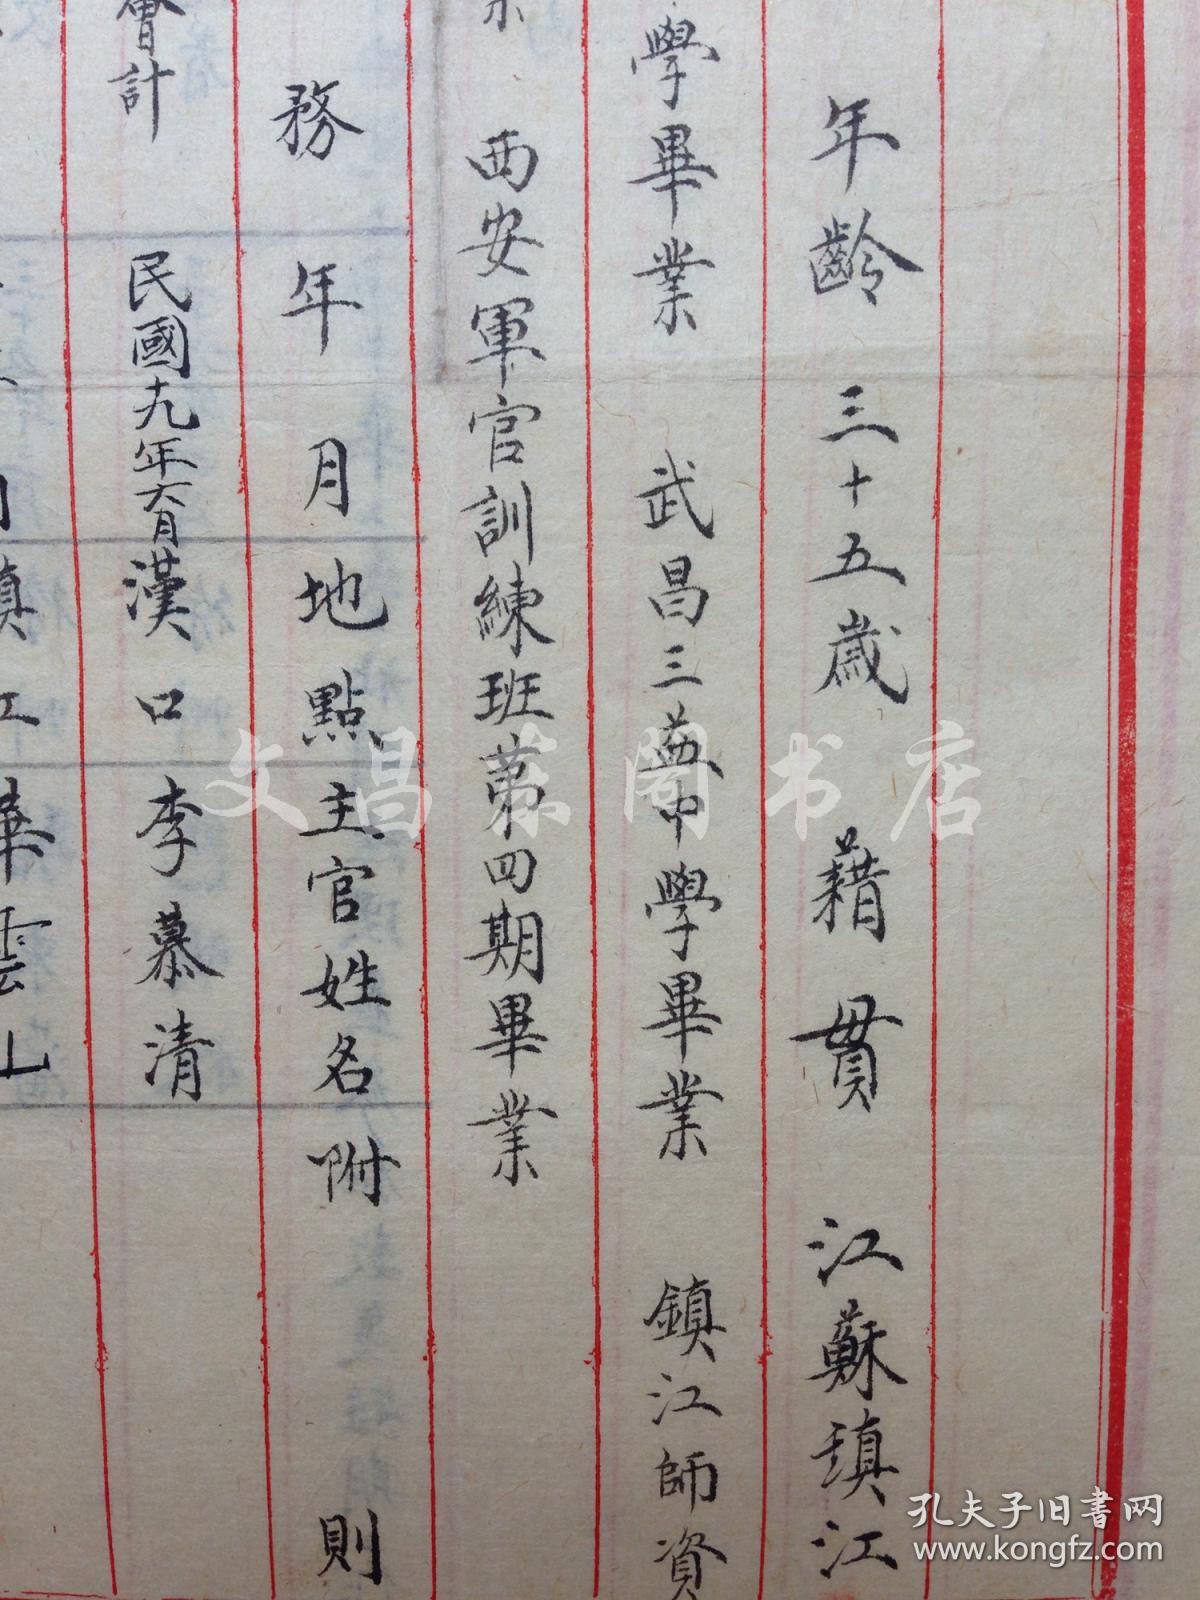 年齡 三十五歲 藉貫 江蘇瑱江
學畢業 武昌三益中學畢業 鎮江師資
西安軍官訓練班第四期畢業
務 年月地點主官姓名附 則
會計 民國十九年六月漢口李慕清
江華雲山
文昌茶閣书店
孔夫子旧書网
www.kongfz.com